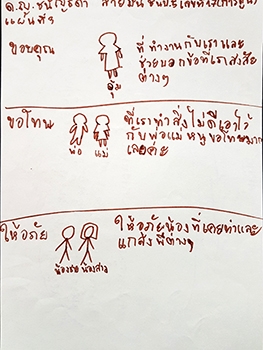 ขอบคุณ
ที่ทำงานกับเราและ
ช่วยบอกข้อที่เราสงสัย
ต่างๆ
อุ้ม
ขอโทษ
ที่เราทำสิ่งไม่ดีเอาไว้
กับพ่อแม่ หนูขอโทษมาก
เลยคะ
พ่อ แม่
ให้อภัย
ให้อภัยน้องที่เคยทำและ
แกล้งพี่ต่างๆ
น้องชาย น้องสาว